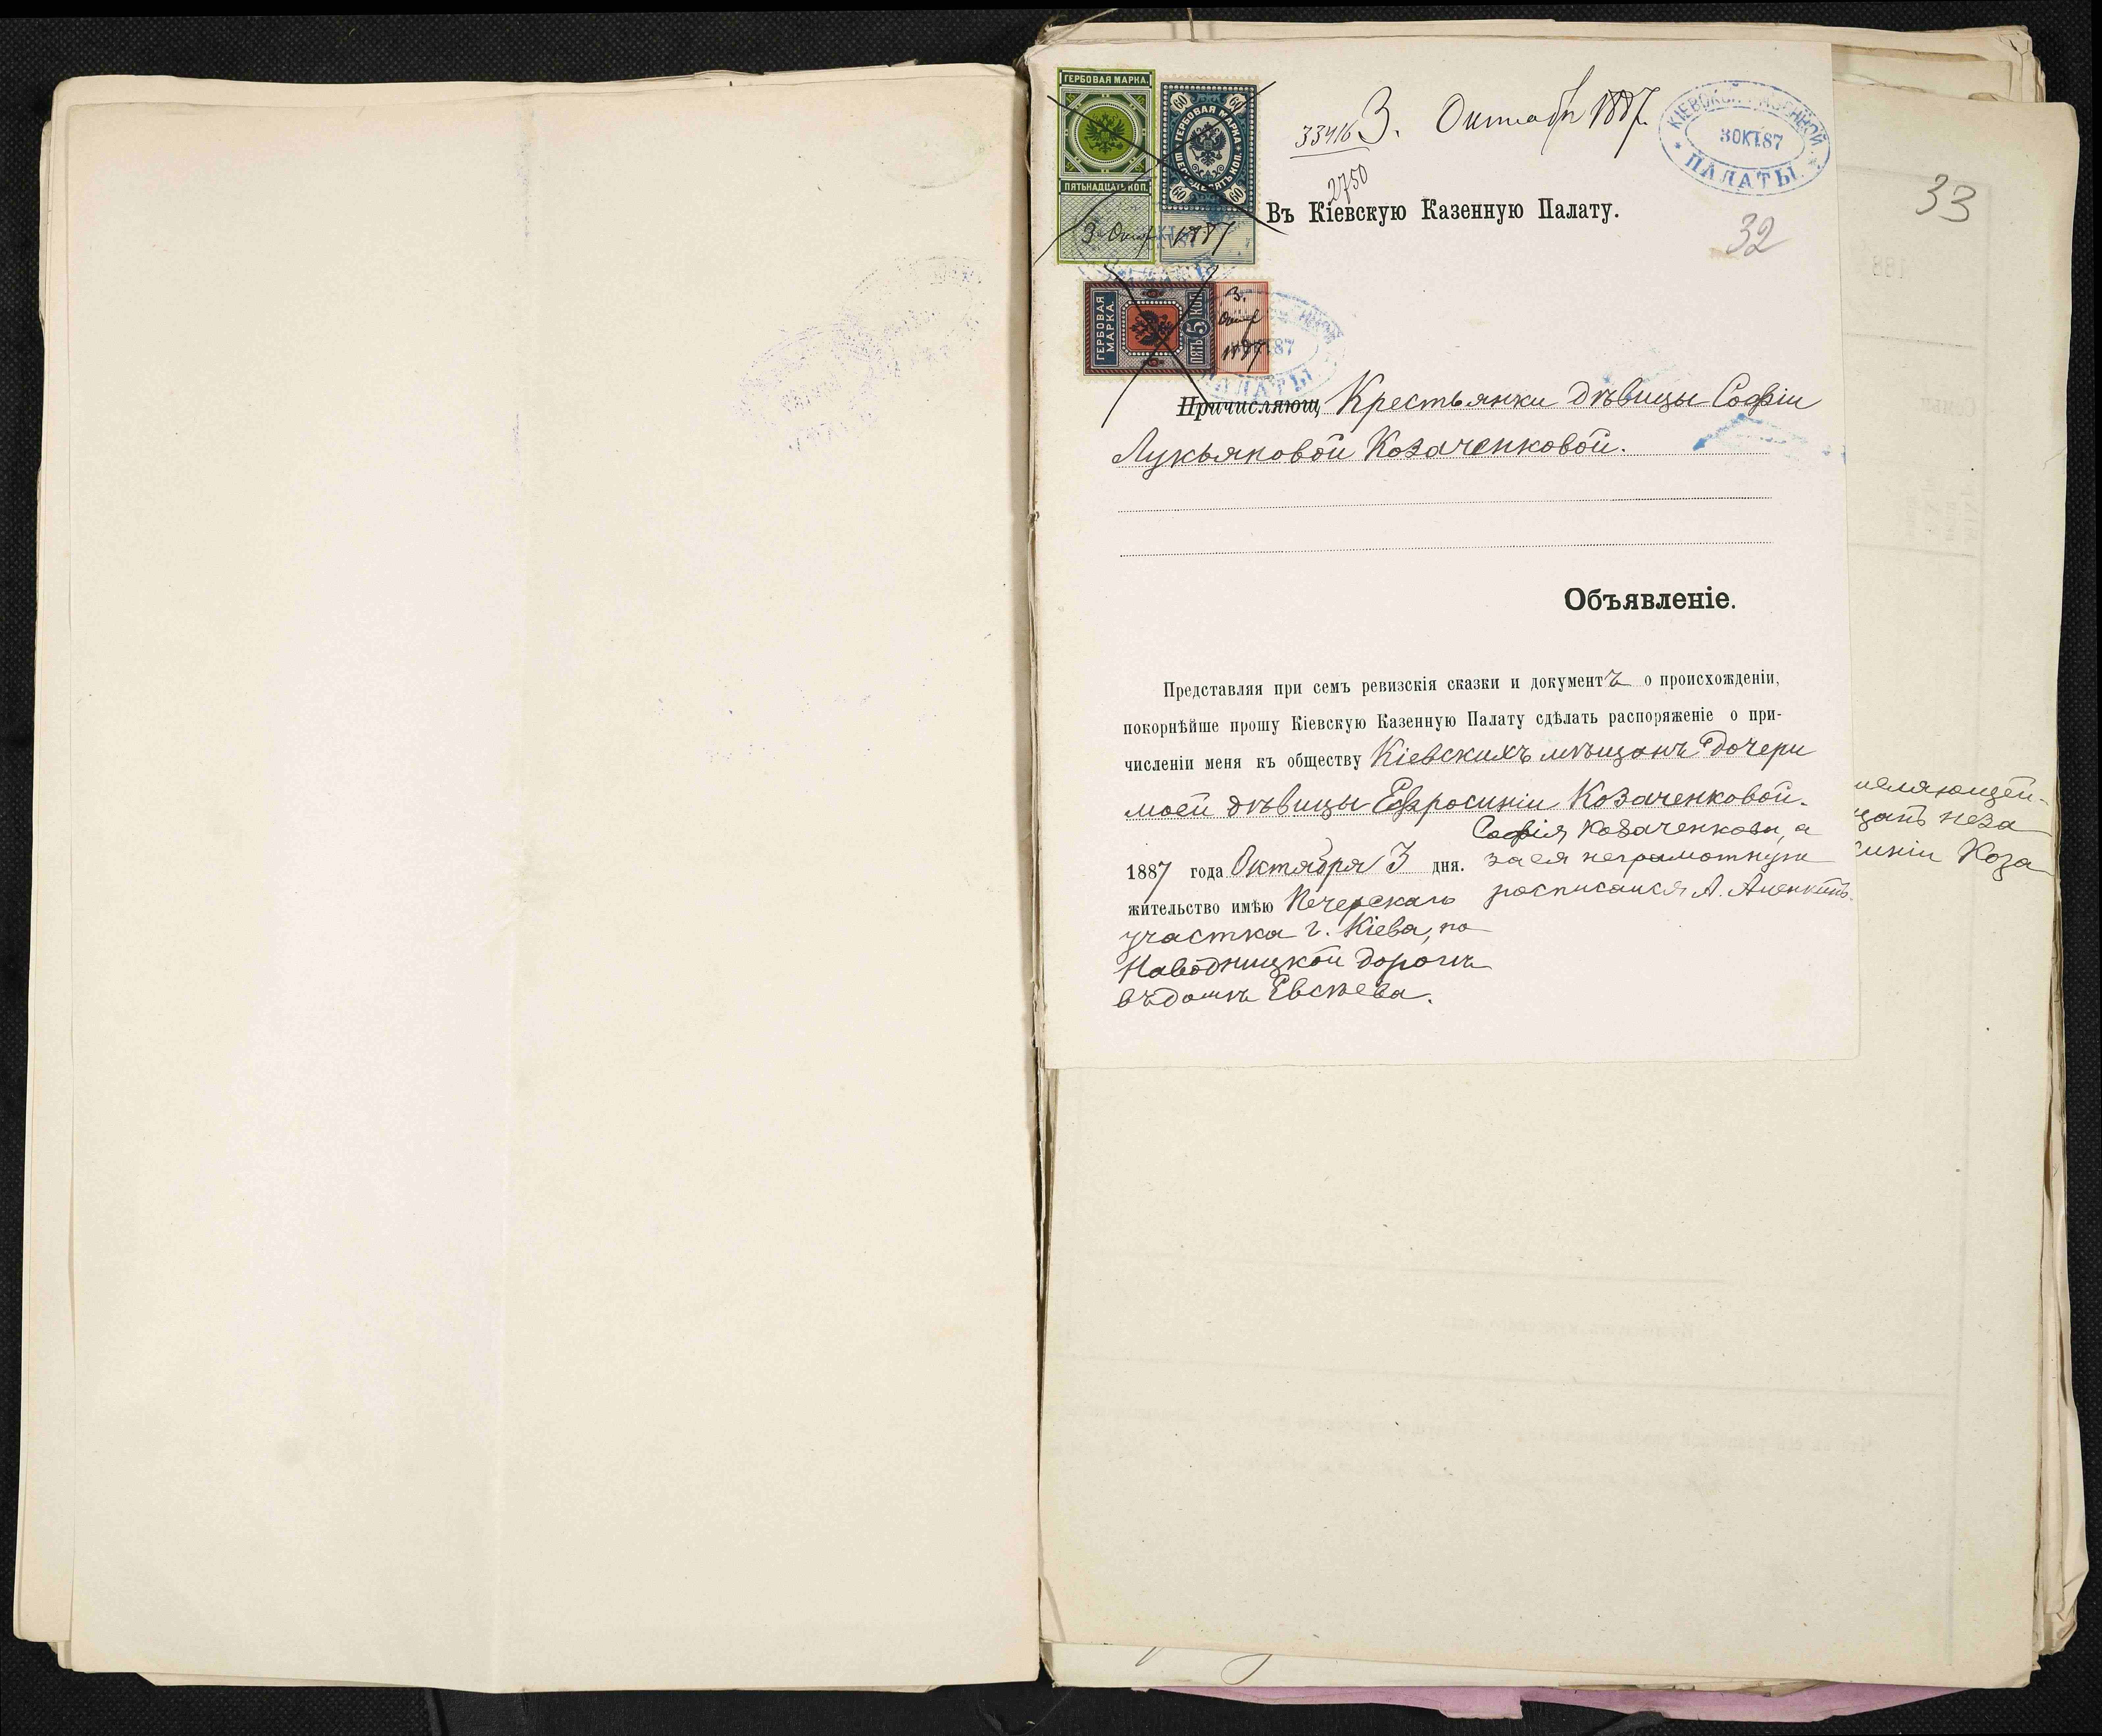 ГЕРБОВАЯ МАРКА.
ПЯТЬНАДЦАТЬ КОП.
60 60
ГЕРБОВАЯ МАРКА
ШЕСТЬДЕСЯТЪ КОП.
60 60
3 Окт 1887
33416 3. Октябр 1887.
КІЕВСКОЙ КАЗЕННОЙ
3 ОКТ 87
ПАЛАТЫ
2750
Въ Кіевскую Казенную Палату.
32
33
ГЕРБОВАЯ МАРКА.
ПЯТЬ 5 КОП
3.
1887
ПАЛАТЫ
Причисляющ Крестьянки дѣвицы Софіи
Лукьяновой Козаченковой.
Объявленіе.
Представляя при семъ ревизскія сказки и документъ о происхожденіи,
покорнѣйше прошу Кіевскую Казенную Палату сдѣлать распоряженіе о при-
численіи меня къ обществу Кіевскихъ мѣщанъ дочери
моей дѣвицы Ефросиніи Козаченковой.
Софія Козаченкова, а
1887 года Октября 3 дня. за ея неграмотную
жительство имѣю Печерскаго росписался А.
участка г. Кіева, по
Наводницкой дорогѣ
въ домѣ Евсѣева.
щанъ неза
синіи Коза